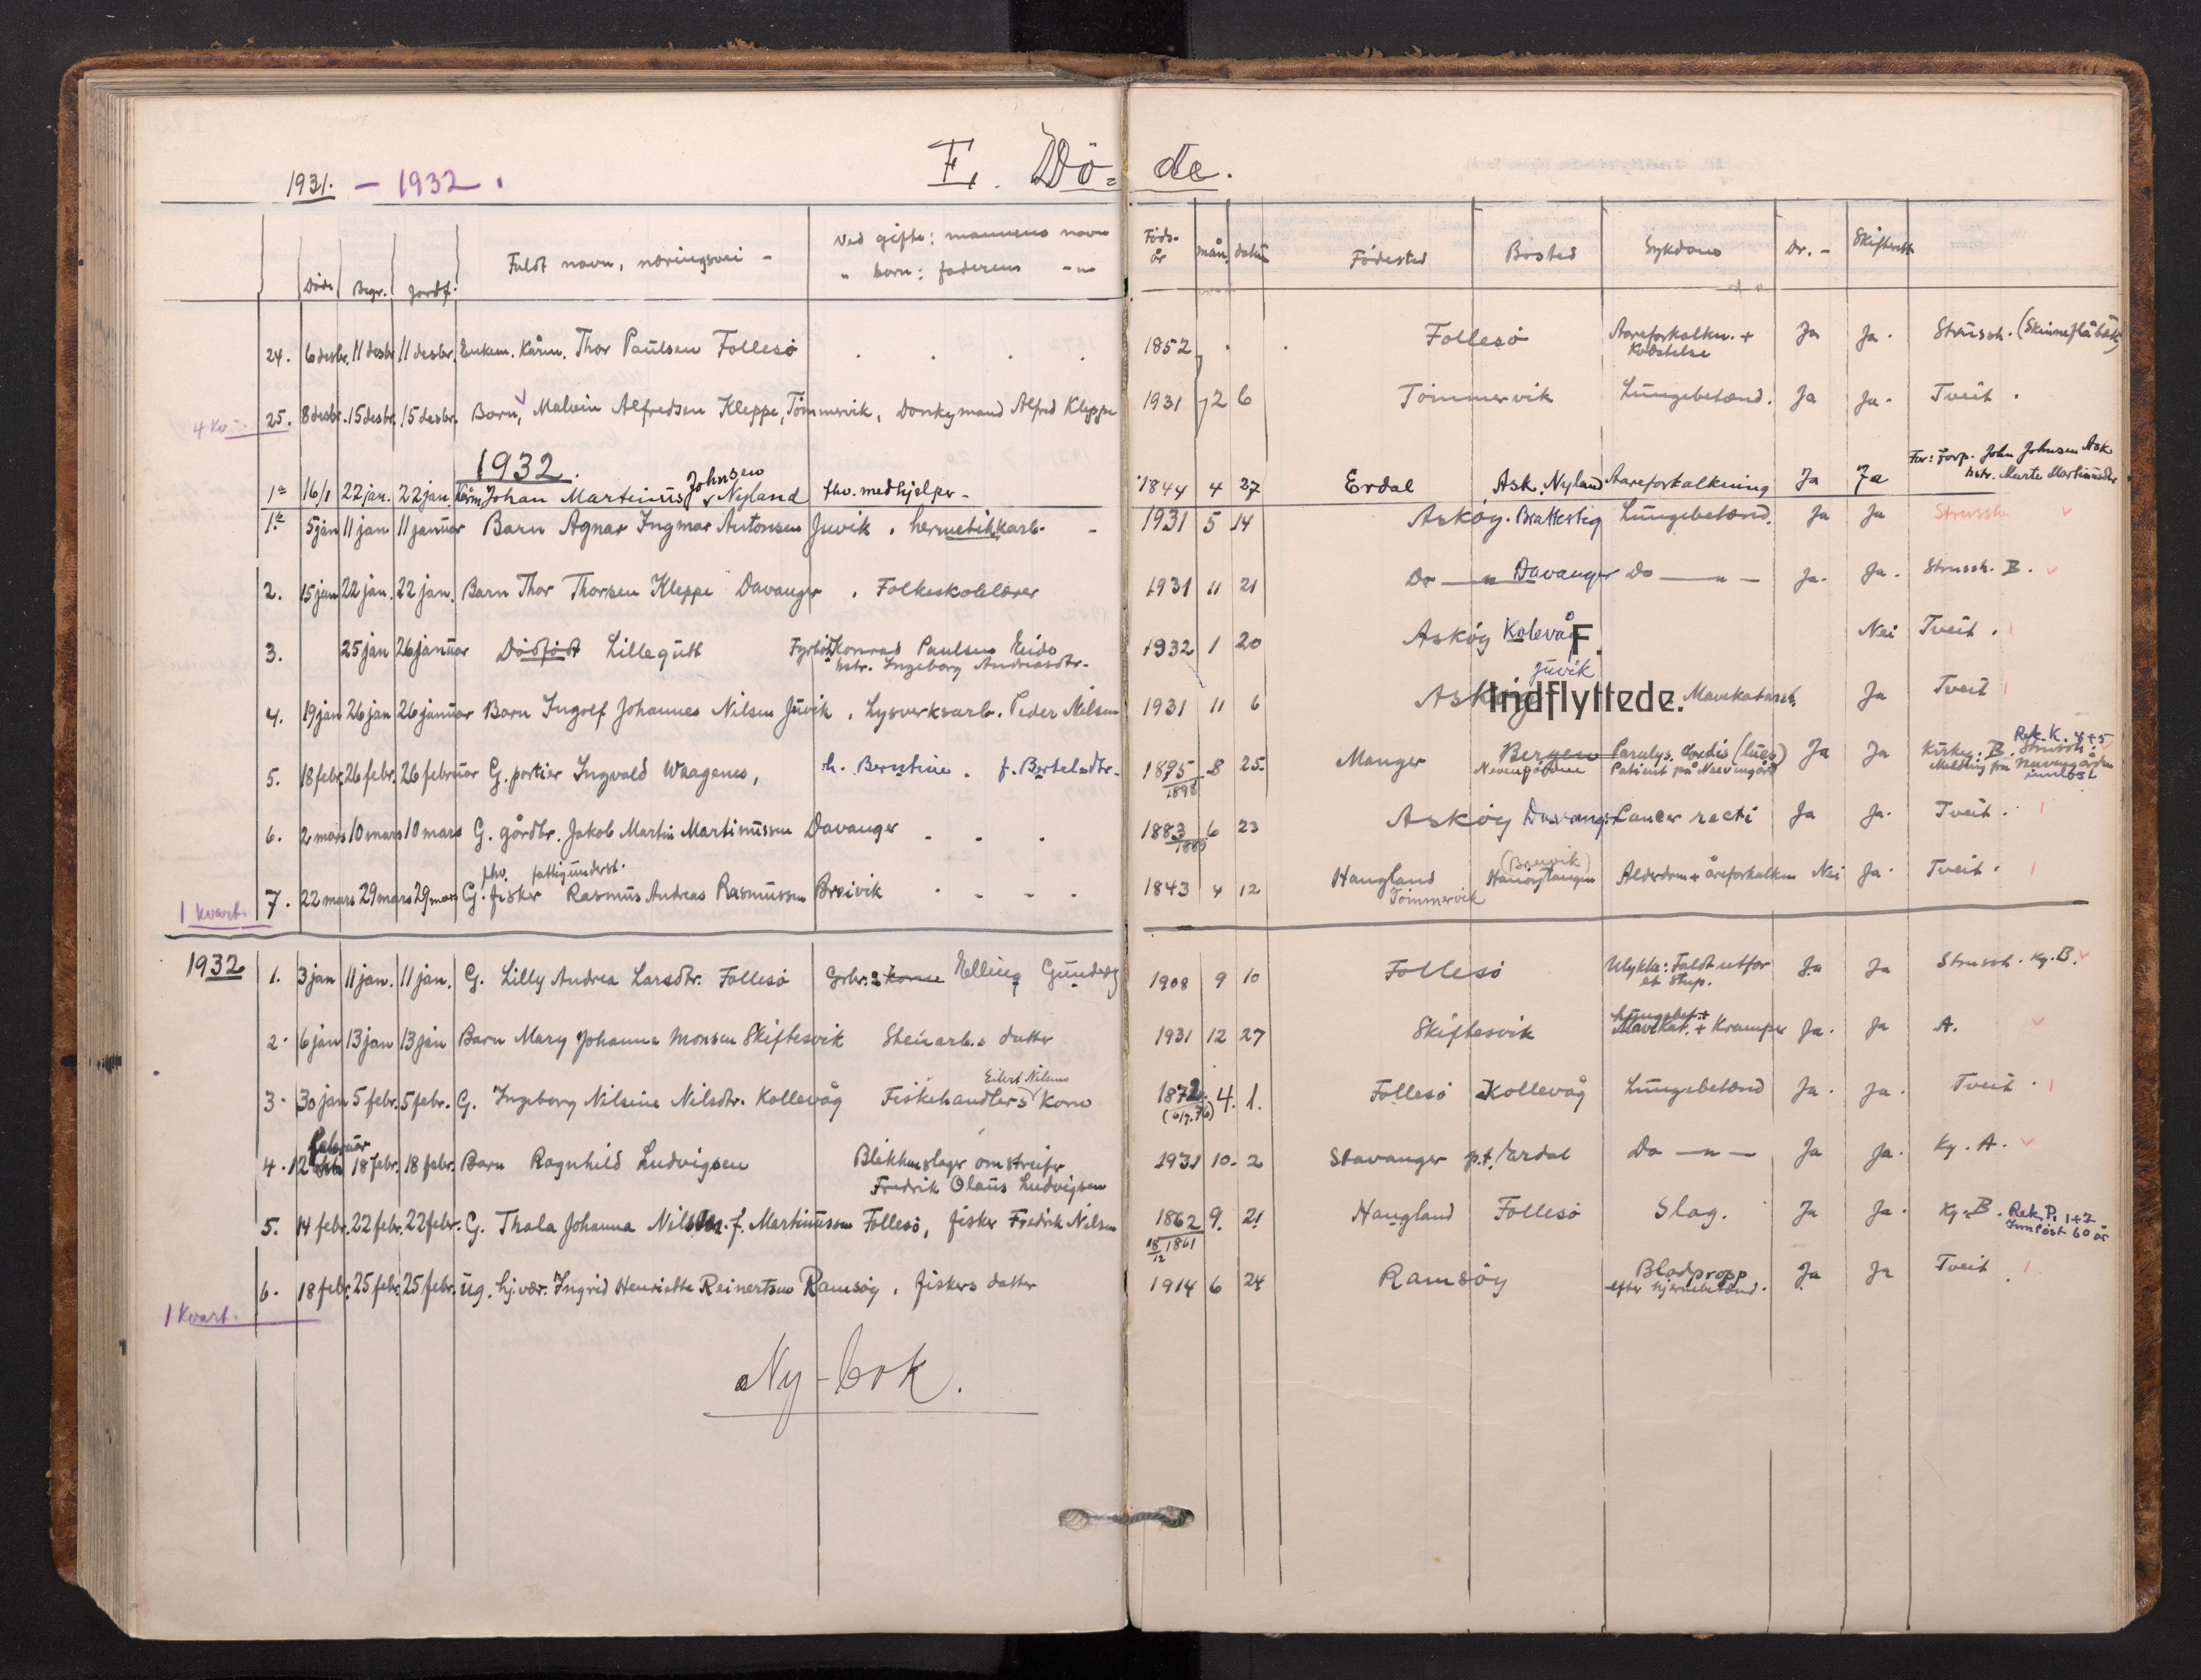 E. Dö = de.
1931. — 1932.
Døde Begr. Jordf. Fuldt navn, næringsvei - Ved gifte: mannens navn Föds. år mån. datum Födested Bosted Sykdom Dr. - Skifterett
" barn: faderens -"-
24. 6 desbr. 11 desbr. 11 desbr. Enkem. Kårm. Thor Paulsen Follesö 1852 Follesö Aareforkalkn. + Ja Ja. Strussh. (Skinneflåbåk)
25. 8 desbr. 15 desbr. 15 desbr. Barn, Malvin Alfredsen Kleppe, Tömmervik, Donkymand Alfred Kleppe 1931 7 2 6 Tömmervik Lungebetænd. Ja Ja. Tveit.
4 Kv.
1932.
Johnsen For: Forp. John Johnsen Ask
1a 16/1 22 jan. 22 jan. Kårm. Johan Martinus Nyland fhv. medhjelper - 1844 4 27 Erdal Ask, Nyland Aareforkalkning Ja Ja hstr. Marte Martinusdtr
1b 5 jan 11 jan 11 januar Barn Agnar Ingmar Antonsen Juvik, hermetikkarb. - 1931 5 14 Asköy. Brattestig Lungebetænd. Ja Ja Strussh
2. 15 jan 22 jan. 22 jan. Barn Thor Thorsen Kleppe Davanger, Folkeskolelærer 1931 11 21 Do — " Davanger Do — " — Ja. Ja. Strussh. B.
3. 25 jan 26 januar Dödfödt Lillegutt Fyrböt. Konrad Paulsen Eide 1932 1 20 Asköy Kolevåg F. Nei Tveit.
hstr. Ingeborg Andreasdtr. Juvik
4. 19 jan 26 jan 26 januar Barn Ingolf Johannes Nilsen Juvik, Lysverksarb. Peder Nilsen 1931 11 6 Asköy Indflyttede. Mavekatarrh. Ja Tveit
Rek. K. 4+5
5. 18 febr. 26 febr. 26 februar G. portier Ingvald Waagenes, h. Berntine. f. Bertelsdtr. 1895 8 25. Manger Bergen Paralys. (lues) Ja Ja Kirkeg. B. Strussh.
1898 Nevengården Patient på Neevengård Melding fra Neevengården
6. 2 mars 10 mars 10 mars G. gårdbr. Jakob Martin Martinussen Davanger 1883 6 23 Asköy Davanger Cancer recti Ja Ja. Tveit.
fhv. fattigunderst. (Breivik)
7. 22 mars 29 mars 29 mars G. fisker Rasmus Andreas Rasmussen Breivik 1843 4 12 Haugland Hanöytangen Alderdom + åreforkalkn Nei Ja. Tveit.
1 Kvart. Tömmervik
1932 1. 3 jan 11 jan. 11 jan. G. Lilly Andrea Larsdtr. Follesö Grbr. s kone Elling 1908 9 10 Follesö Ulykke: Faldt utfor Ja Ja Strussh. Kg. B.
et Stup.
Lungebet. +
2. 6 jan 13 jan 13 jan Barn Mary Johanne Monsen Skiftesvik Stenarb.s datter 1931 12 27 Skiftesvik Mavekat. + Kramper Ja. Ja A.
Eilert Nilsens
3. 30 jan 5 febr. 5 febr. G. Ingeborg Nilsine Nilsdtr. Kollevåg Fiskehandlers Kone 1872. 4. 1. Follesö Kollevåg Lungebetænd Ja. Ja. Tveit.
februar
4. 12 18 febr. 18 febr. Barn Ragnhild Ludvigsen Blikkenslager omstreifer 1931 10. 2 Stavanger p.t. Erdal Do — " — Ja Ja. Kg. A.
Fredrik Olaus Ludvigsen
5. 14 febr. 22 febr. 22 febr. G. Thala Johanna Nilsen f. Martinussen Follesö, fisker Fredrik Nilsen 1862 9. 21 Haugland Follesö Slag. Ja Ja. Kg. B. Rek. P. 1+2
18/12 1861
6. 18 febr. 25 febr. 25 febr. ug. hj.vær. Ingrid Henriette Reinertsen Ramsöy, fiskers datter 1914 6 24 Ramsöy Blodpropp Ja Ja Tveit
1 Kvart. efter hjernebetænd.
Ny-bok.